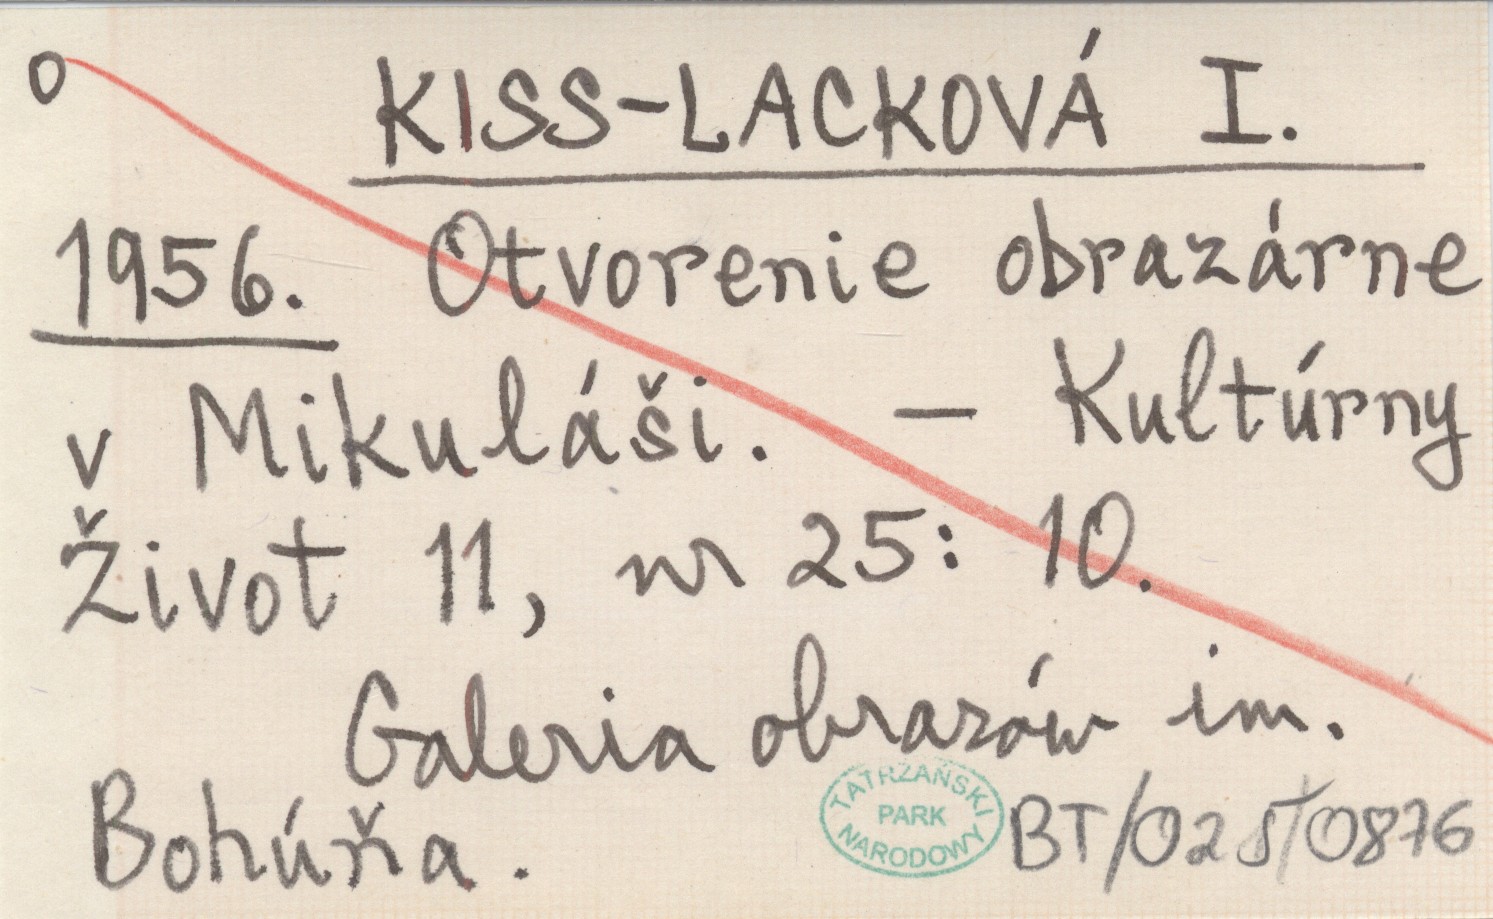 o KISS-LACKOVÁ I.
1956. Otvorenie obrazárne
v Mikuláši. – Kultúrny
Život 11, nr 25: 10.
Galeria obrazów im.
Bohúňa.
TATRZAŃSKI
PARK
NARODOWY
BT/025/0876